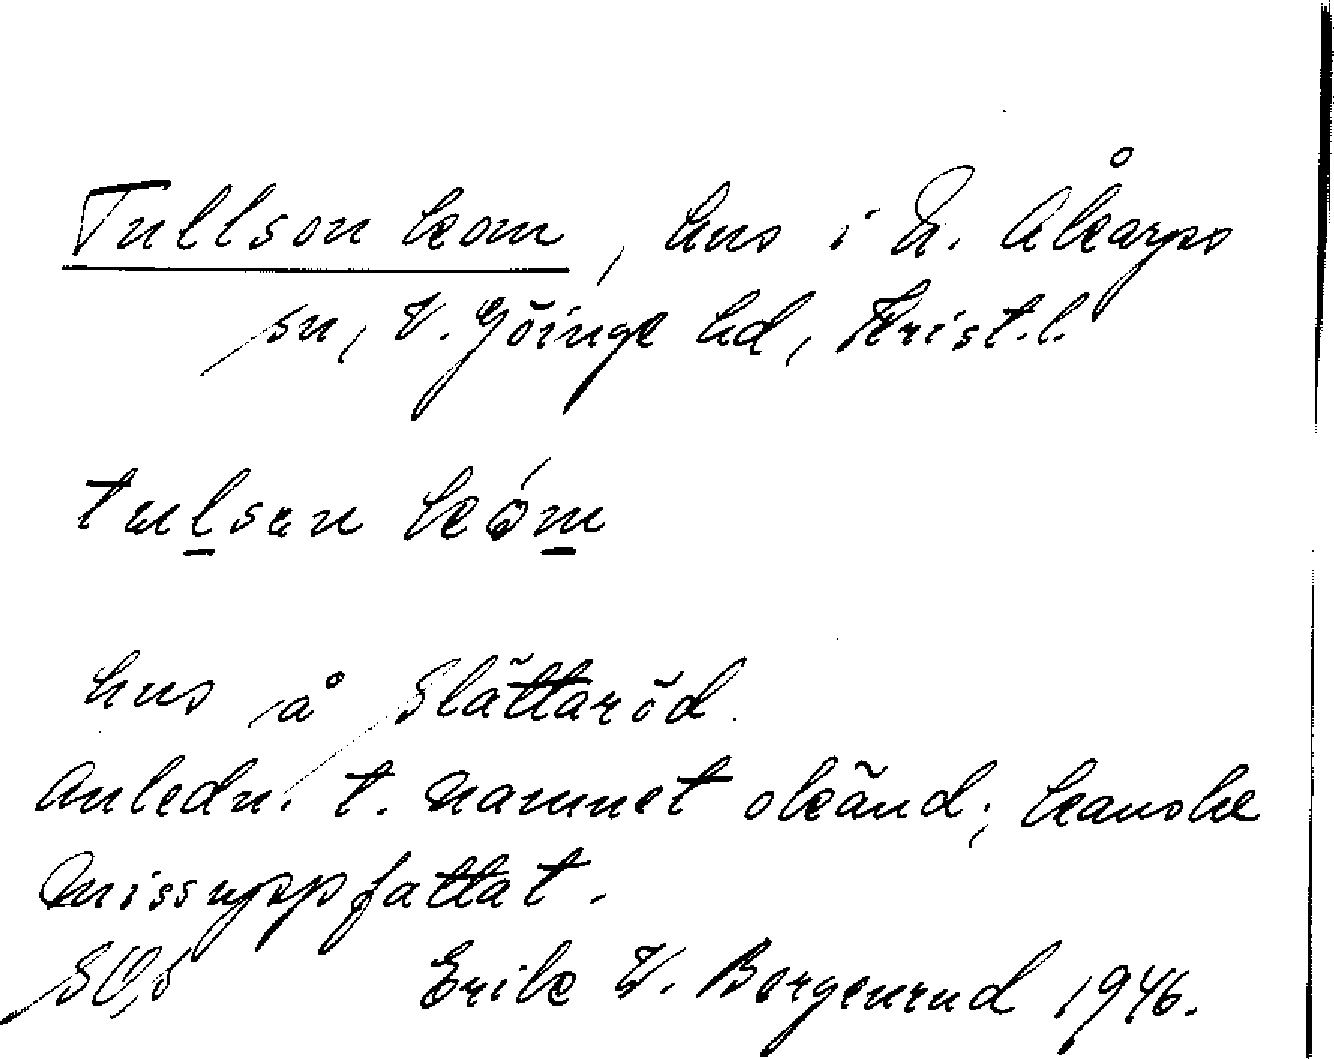 Tullson kom, hus i N. Åkarps
sn, V. Göinge hd, Krist.l.
tulsen kóm
hus å Slättaröd.
Anledn. t. namnet okänd; kanske
missuppfattat.
Erik V. Borgenrud 1946.